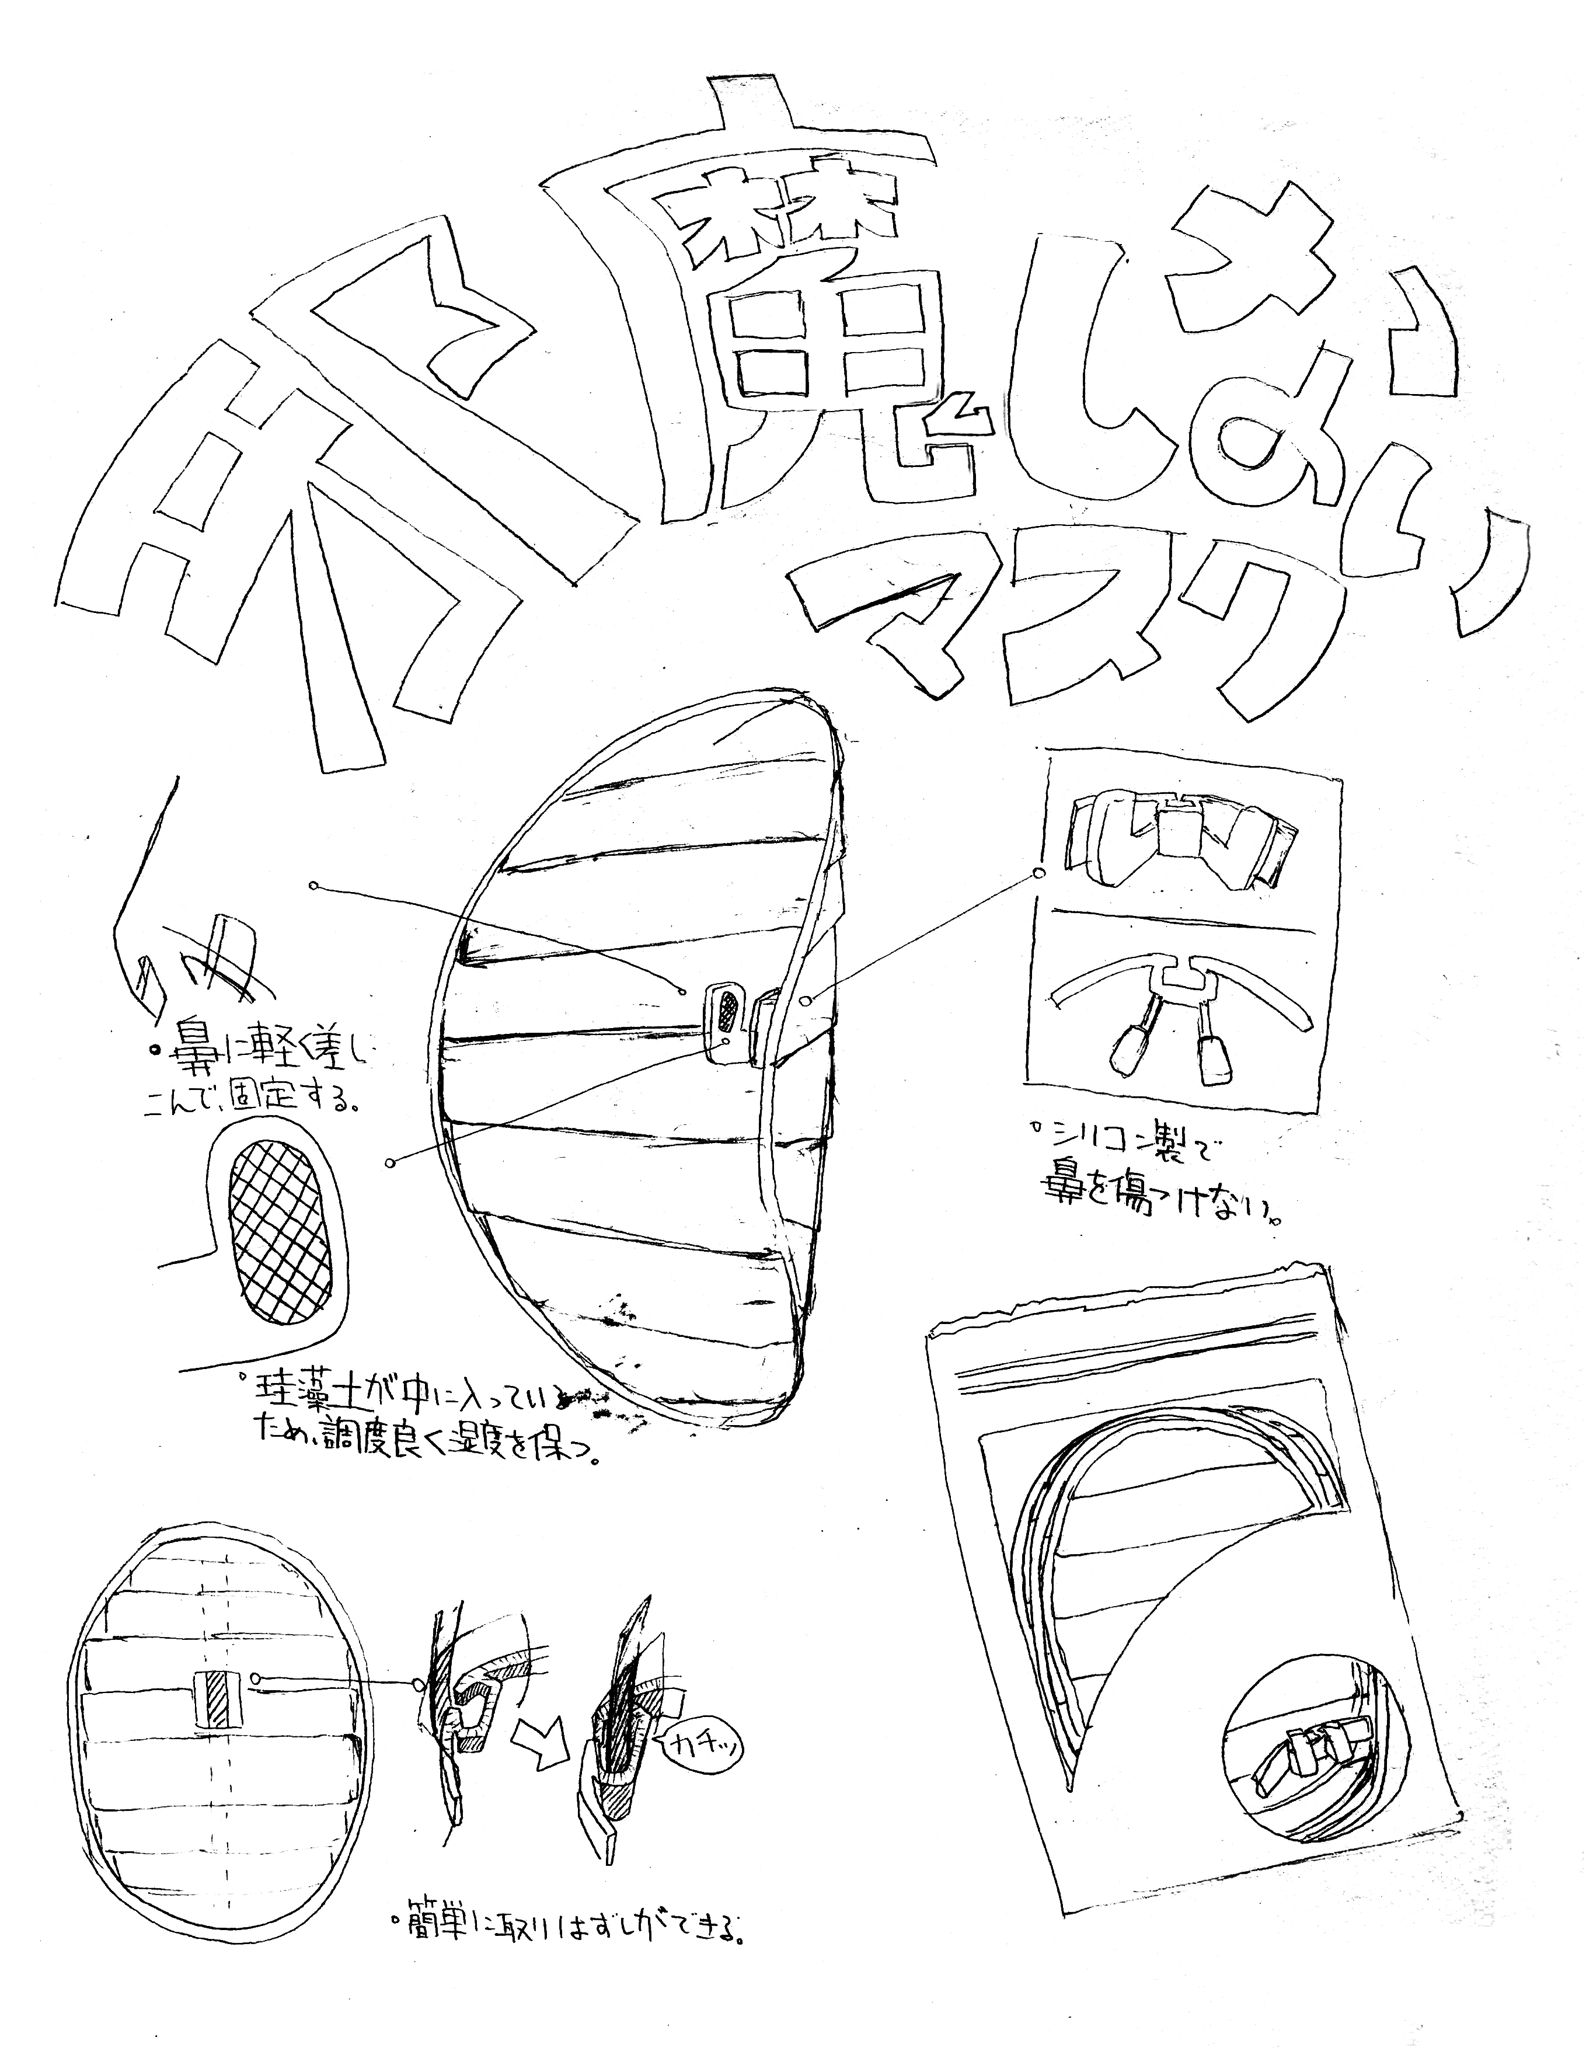 邪魔じない
マスク
・鼻に軽く差し
こんで、固定する。
・シリコン製で
鼻を傷つけない。
・珪藻土が中に入っている
ため、調度良く湿度を保つ。
カチッ
・簡単に取りはずしができる。